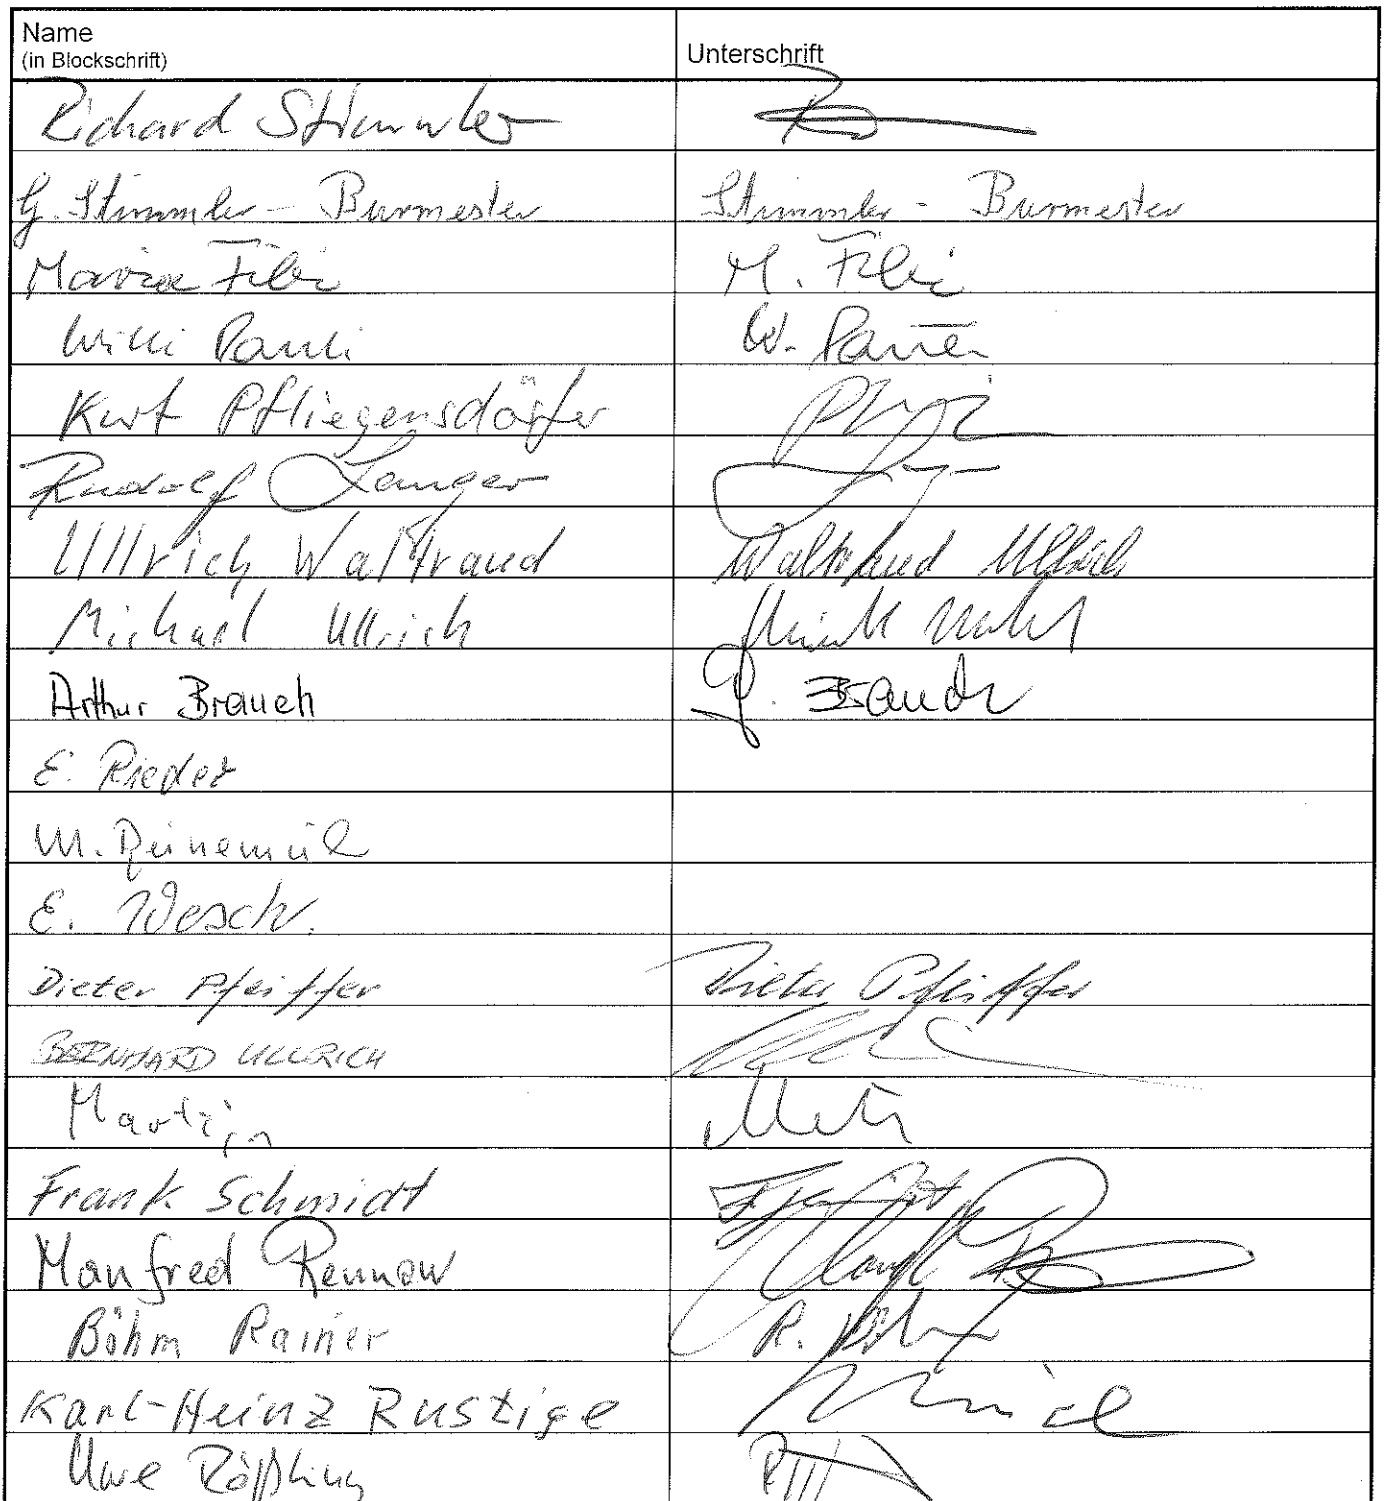 Name
(in Blockschrift)
Unterschrift
Richard Stimmler
G. Stimmler - Burmester Stimmler - Burmester
Maria Filbi M. Filbi
Willi Pauli W. Pauli
Kurt Pfliegensdörfer
Rudolf Langer
Ullrich Waltraud Waltraud Ullrich
Michael Ullrich
Arthur Brauch A. Brauch
E. Rieder
M. Reinemut
E. Wesch.
Dieter Pfeiffer Dieter Pfeiffer
BERNHARD ULLRICH
Martin
Frank Schmidt
Manfred Rennow
Böhm Rainer R. Böhm
Karl-Heinz Rustige
Uwe Rößling